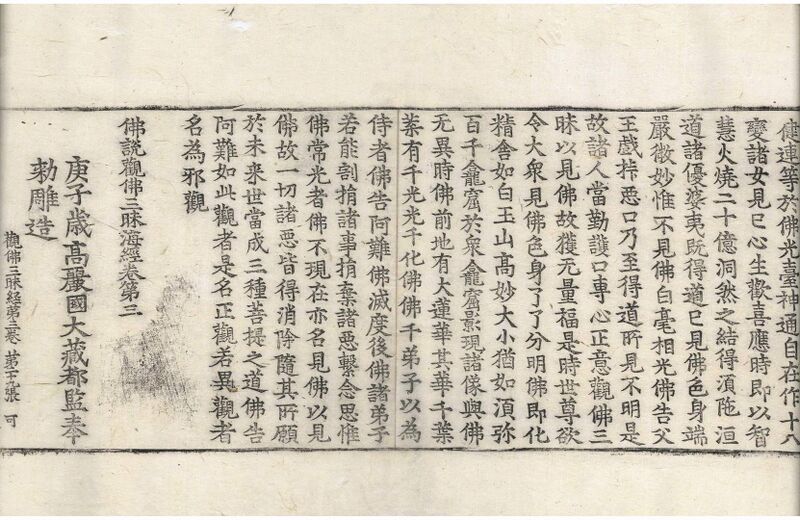 健連等於佛光臺神通自在作十八
變諸女見已心生歡喜應時即以智
慧火燒二十億洞然之結得湏陁洹
道諸優婆夷旣得道已見佛色身端
嚴微妙惟不見佛白毫相光佛告父
王戱㧞惡口乃至得道所見不明是
故諸人當勤護口專心正意觀佛三
昧以見佛故獲无量福是時世尊欲
令大衆見佛色身了了分明佛即化
精舍如白玉山高妙大小猶如湏弥
百千龕窟於衆龕窟影現諸像與佛
无異時佛前地有大蓮華其華千葉
葉有千光光千化佛佛千弟子以爲
侍者佛告阿難佛滅度後佛諸弟子
若能割捐諸事捐棄諸惡繫念思惟
佛常光者佛不現在亦名見佛以見
佛故一切諸惡皆得消除隨其所願
於未來世當成三種菩提之道佛告
阿難如此觀者是名正觀若異觀者
名為邪觀
佛說觀佛三昧海經卷第三
庚子歲高麗國大藏都監奉
勅雕造
觀佛三昧経第三卷 苐五張 可